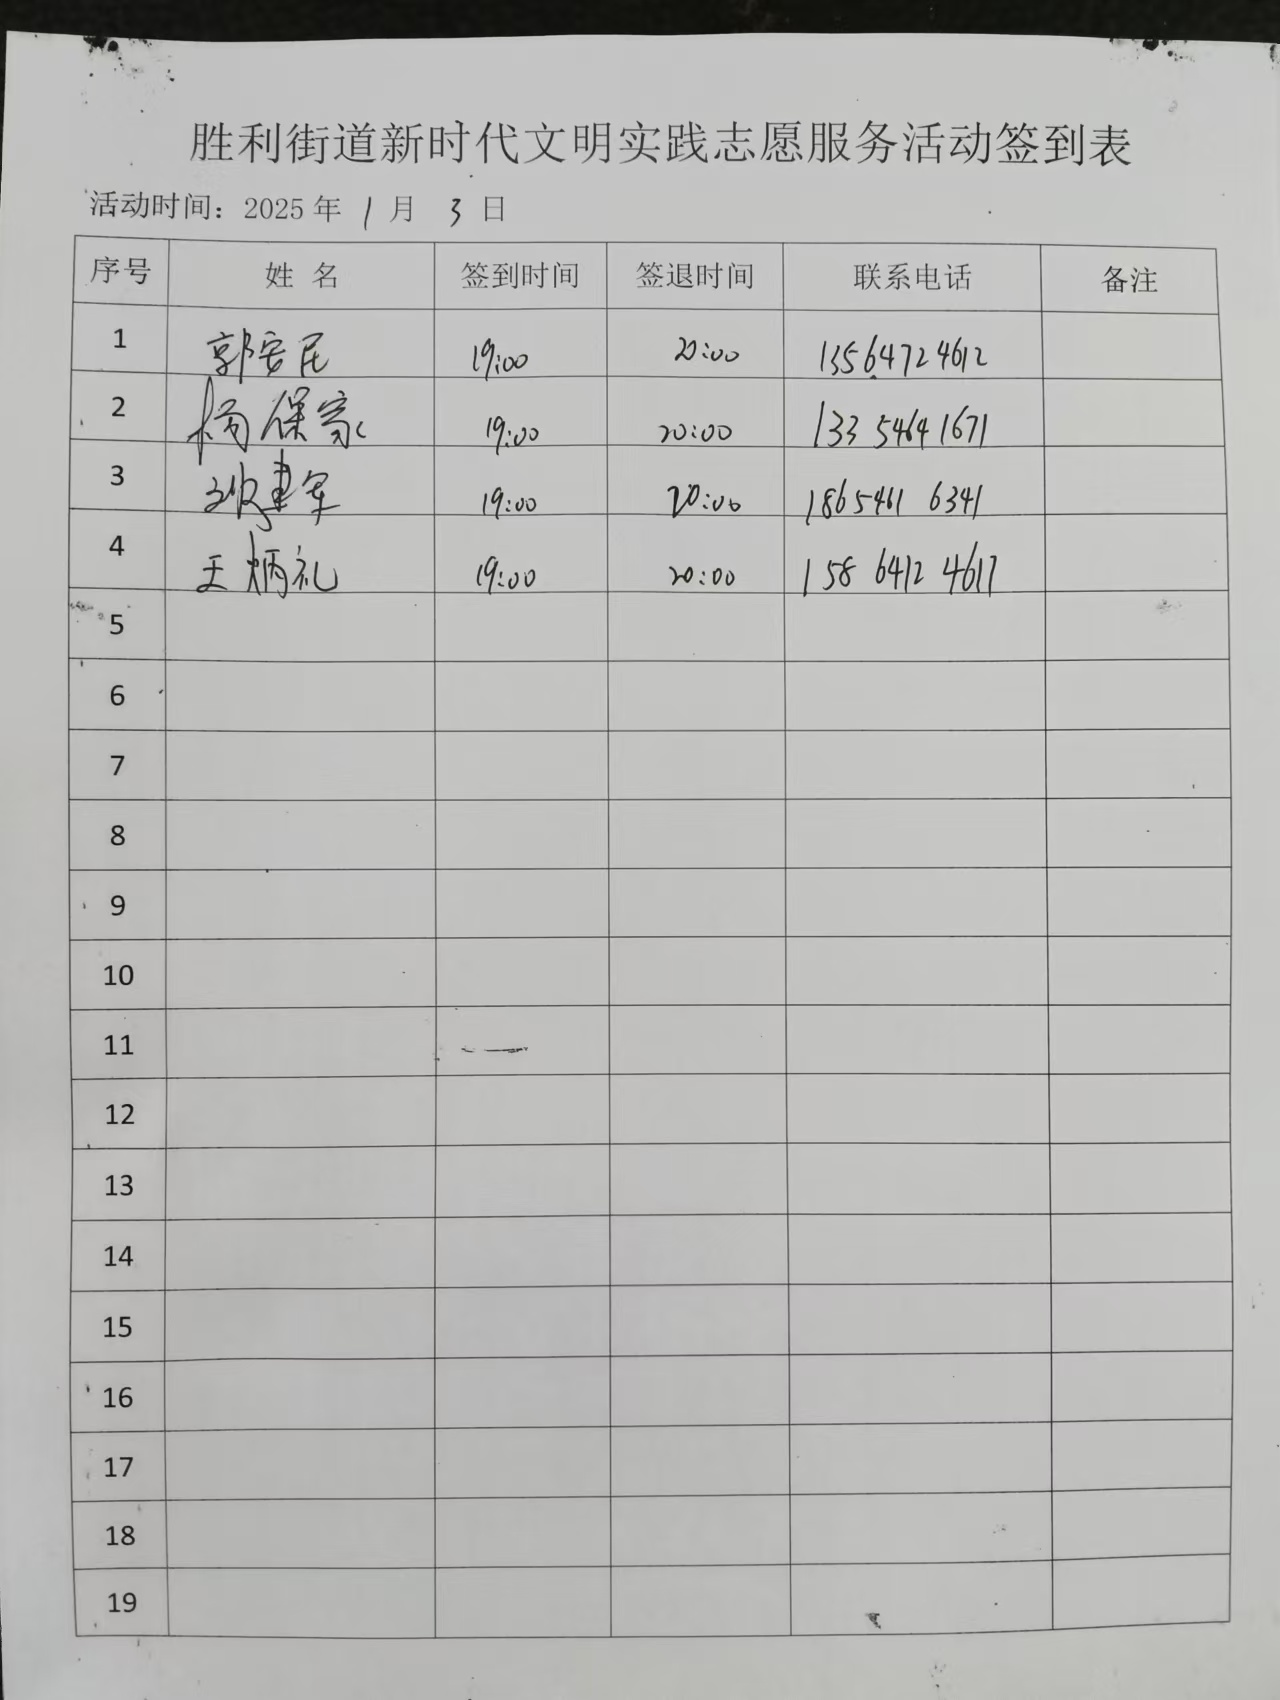 胜利街道新时代文明实践志愿服务活动签到表
活动时间：2025 年 1 月 3 日
序号 姓 名 签到时间 签退时间 联系电话 备注
1 郭安民 19:00 20:00 13564724612
2 杨保家 19:00 20:00 133 5464 1671
3 建军 19:00 20:00 1865461 6341
4 王炳礼 19:00 20:00 158 6412 4617
5
6
7
8
9
10
11
12
13
14
15
16
17
18
19